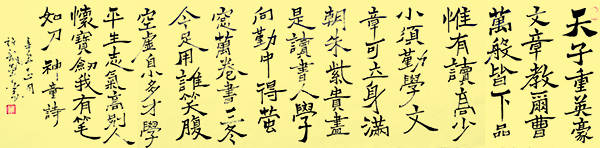 天子重英豪
文章教爾曹
萬般皆下品
惟有讀高少
小須勤學文
章可立身滿
朝朱紫貴盡
是讀書人學
向勤中得螢
窓萬卷書三冬
今足用誰笑腹
空虛自小多才學
平生志氣高別人
懷寶劍我有筆
如刀 神童詩